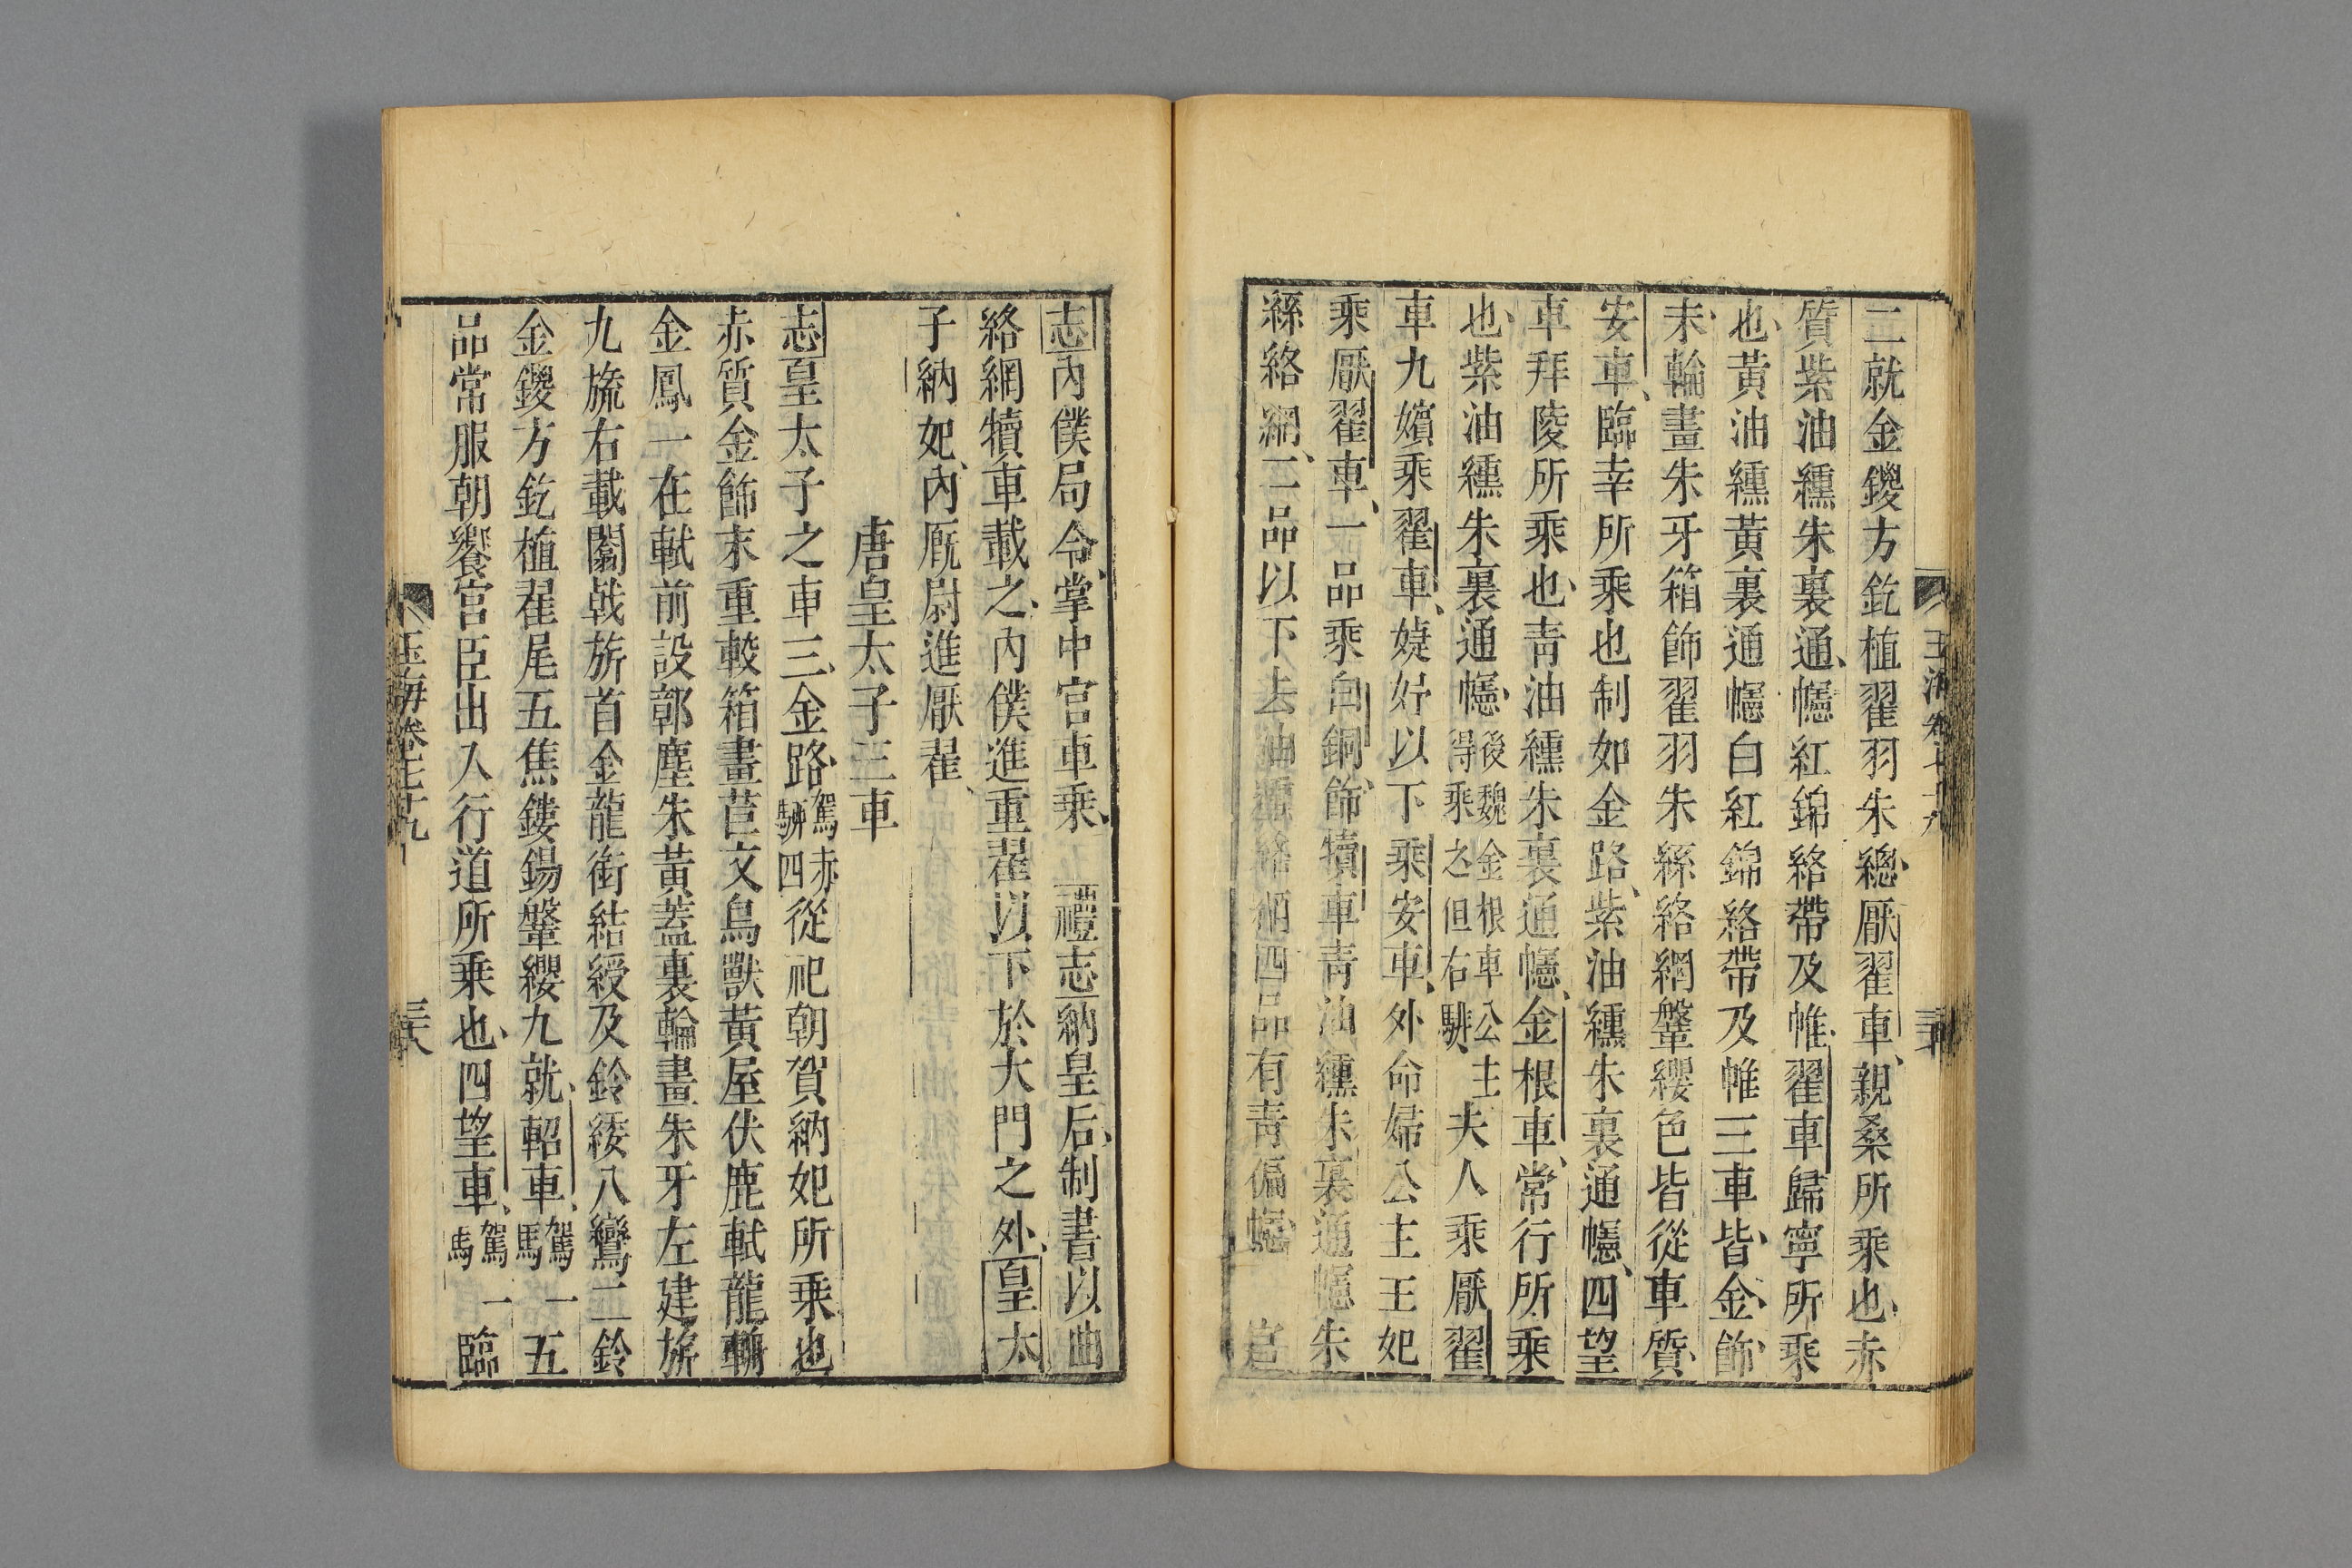 二就金鍐方釳植翟羽朱總厭翟車親桑所乘也赤
質紫油纁朱裏通幰紅錦絡帶及帷翟車歸寧所乘
也黃油纁黃裏通幰白紅錦絡帶及帷三車皆金飾
末輪畫朱牙箱飾翟羽朱絲絡網鞶纓色皆從車質
安車臨幸所乘也制如金路紫油纁朱裏通幰四望
車拜陵所乘也青油纁朱裏通幰金根車常行所乘
也紫油纁朱裏通幰後魏金根車公主得乘之但右騑夫人乘厭翟
車九嬪乘翟車婕妤以下乘安車外命婦公主王妃
乘厭翟車一品乘白銅飾犢車青油纁朱裏通幰朱
絲絡網二品以下去油纁絡網四品有青偏幰 官
志內僕局令掌中宮車乘 禮志納皇后制書以曲
絡網犢車載之內僕進重翟以下於大門之外皇太
子納妃內厩尉進厭翟
唐皇太子三車
志皇太子之車三金路駕赤騂四從祀朝賀納妃所乘也
赤質金飾末重較箱畫苣文鳥獸黃屋伏鹿軾龍輈
金鳳一在軾前設鄣塵朱黃蓋裏輪畫朱牙左建旂
九旒右載闟戟旂首金龍銜結綬及鈴緌八鸞二鈴
金鍐方釳植翟尾五焦鏤鍚鞶纓九就軺車駕一馬五
品常服朝饗宮臣出入行道所乘也四望車駕一馬臨
玉海卷七十九
三大